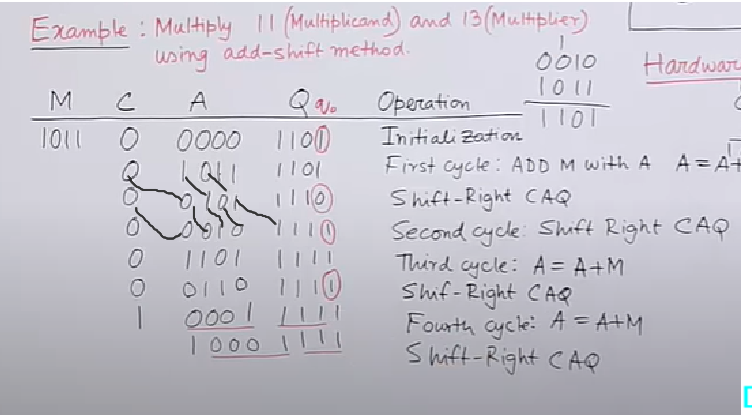 Example : Multiply 11 (Multiplicand) and 13 (Multiplier)
using add-shift method.
1
0010
1011
1101
Hardwar
M C A Q q₀ Operation
1011 0 0000 1101 Initialization
0 1011 1101 First cycle: ADD M with A A = A+
0 0101 1110 Shift-Right CAQ
0 0010 1111 Second cycle: Shift Right CAQ
0 1101 1111 Third cycle: A = A+M
0 0110 1111 Shif-Right CAQ
1 0001 1111 Fourth cycle: A = A+M
1000 1111 Shift-Right CAQ